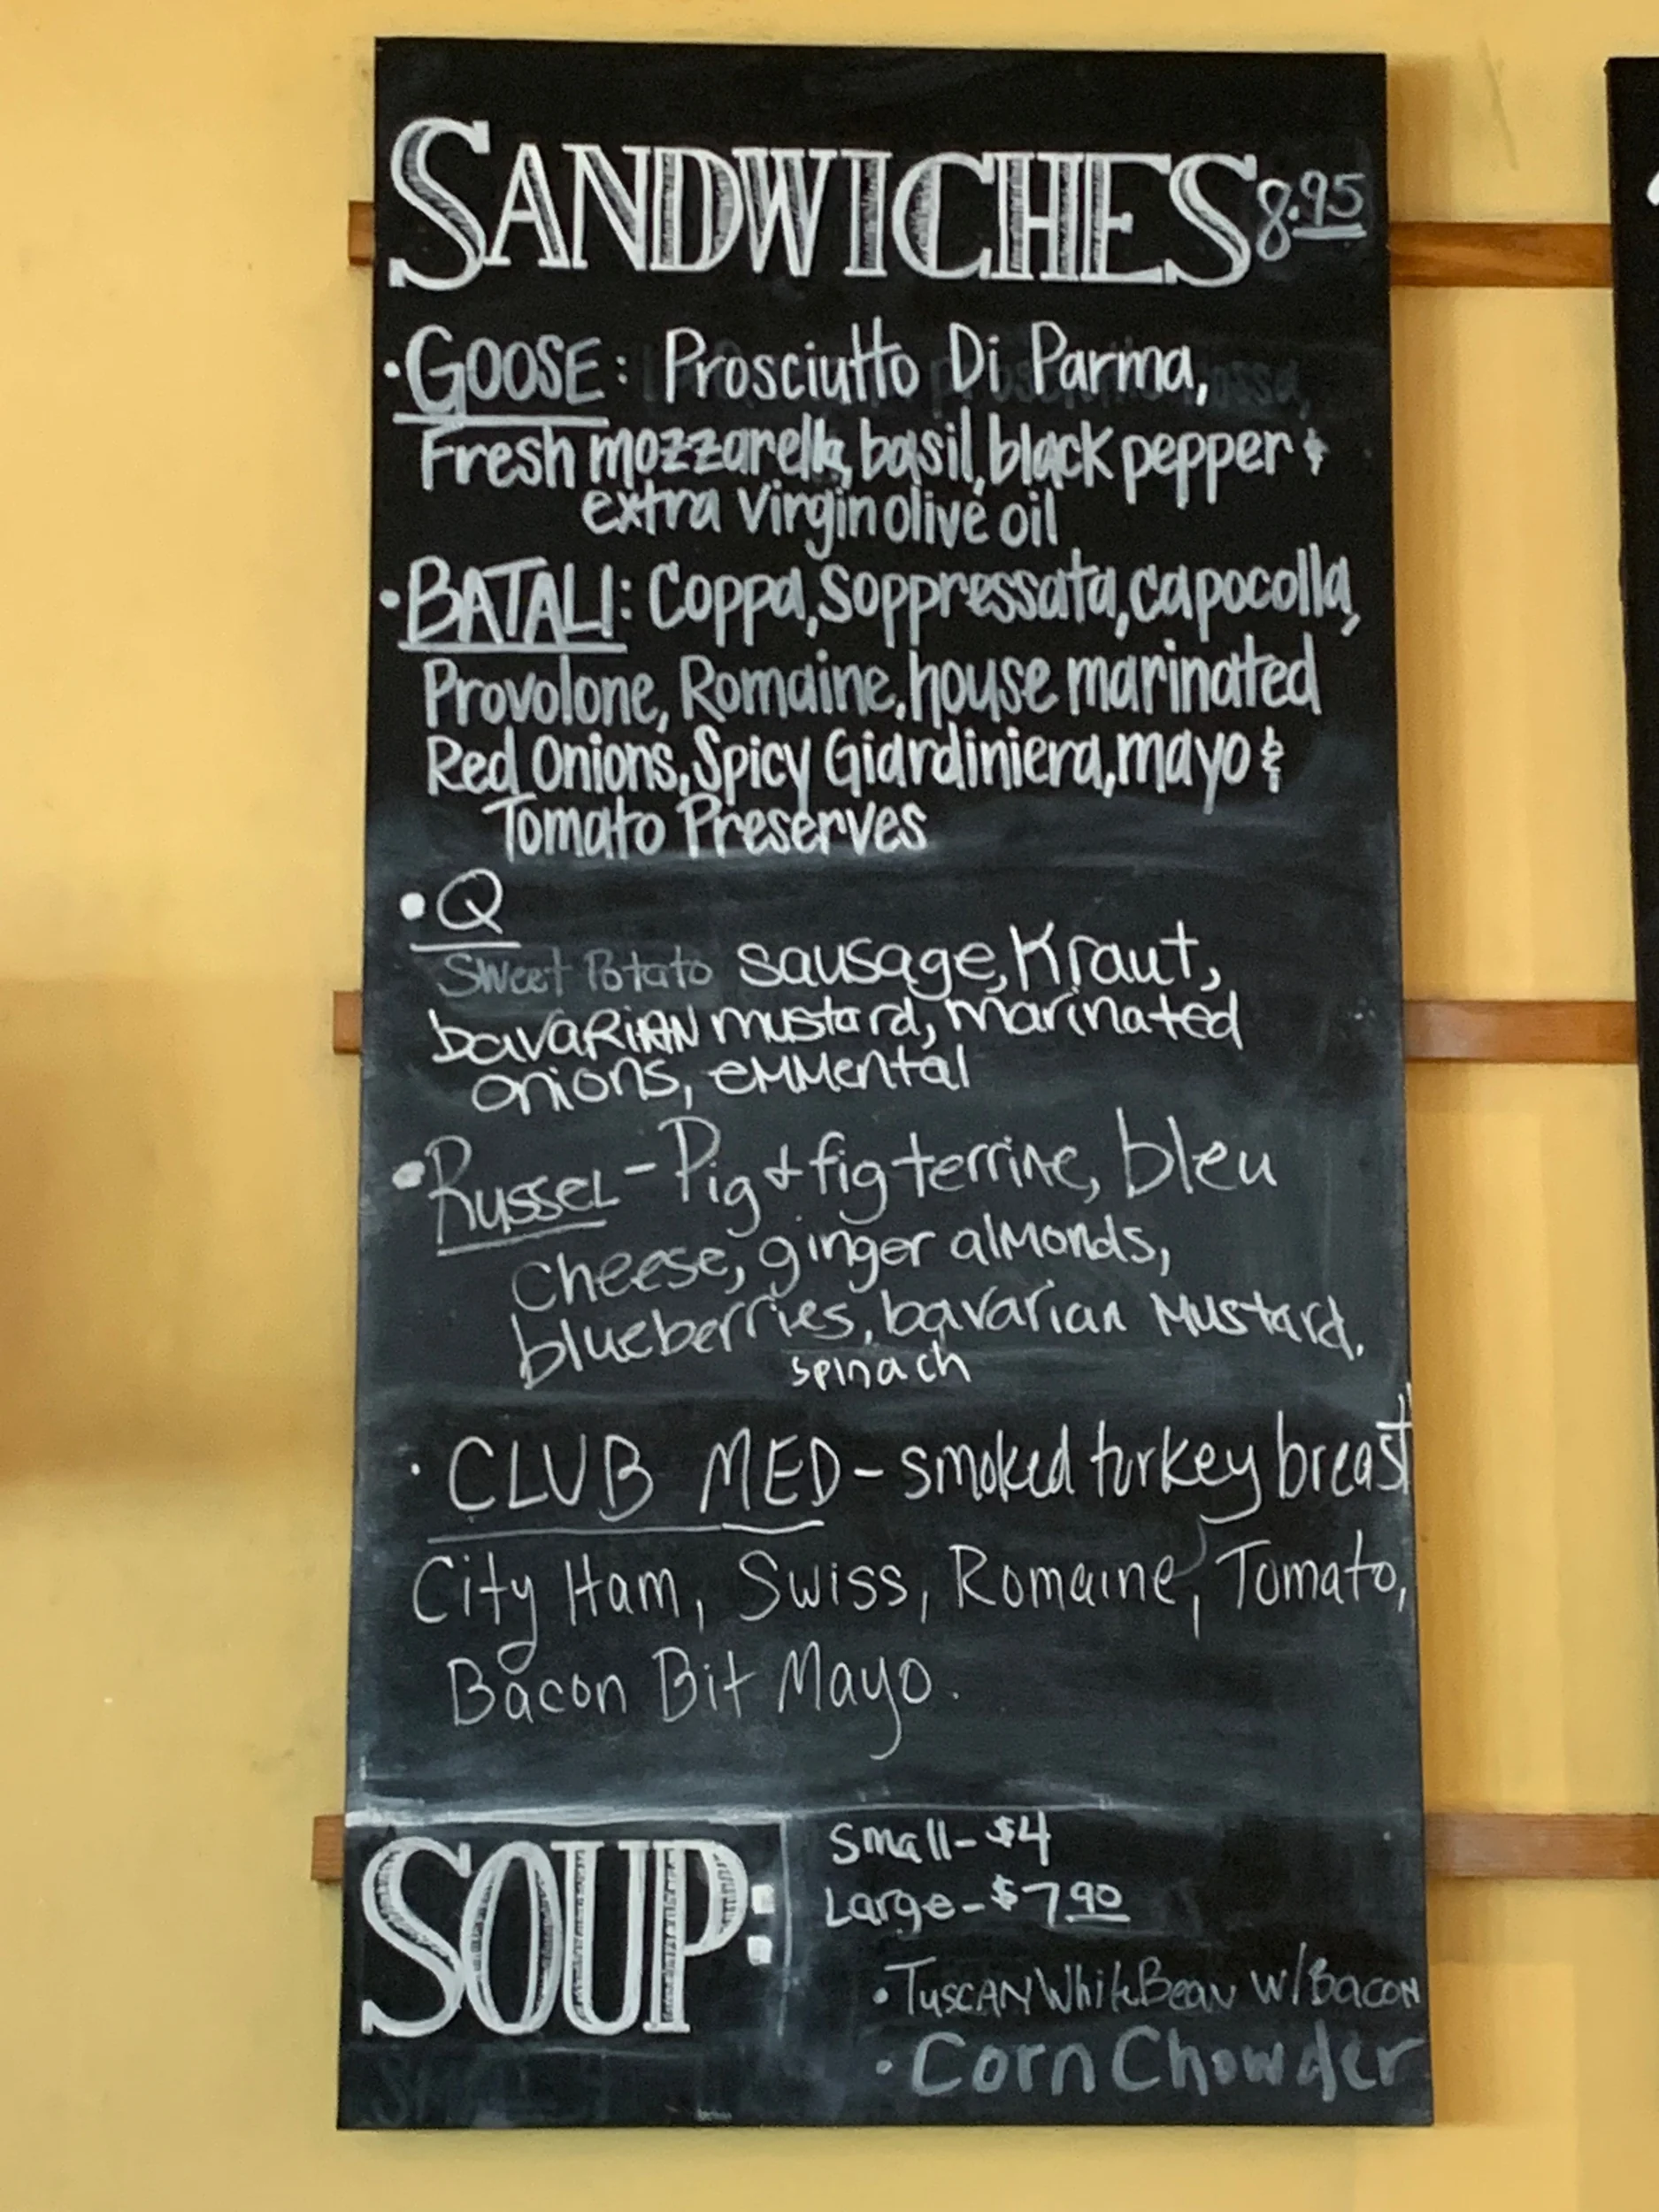 SANDWICHES 8.95
• GOOSE: Prosciutto Di Parma,
Fresh mozzarella, basil, black pepper &
extra virgin olive oil
• BATALI: Coppa, Soppressata, capocolla,
Provolone, Romaine, house marinated
Red Onions, Spicy Giardiniera, mayo &
Tomato Preserves
• Q
Sweet Potato sausage, Kraut,
bavaRiAN mustard, marinated
onions, emmental
• Russel - Pig & fig terrine, bleu
cheese, ginger almonds,
blueberries, bavarian mustard,
spinach
• CLUB MED - smoked turkey breast
City Ham, Swiss, Romaine, Tomato,
Bacon Bit Mayo.
SOUP:
Small - $4
Large - $7.90
• Tuscan White Bean w/ Bacon
• Corn Chowder